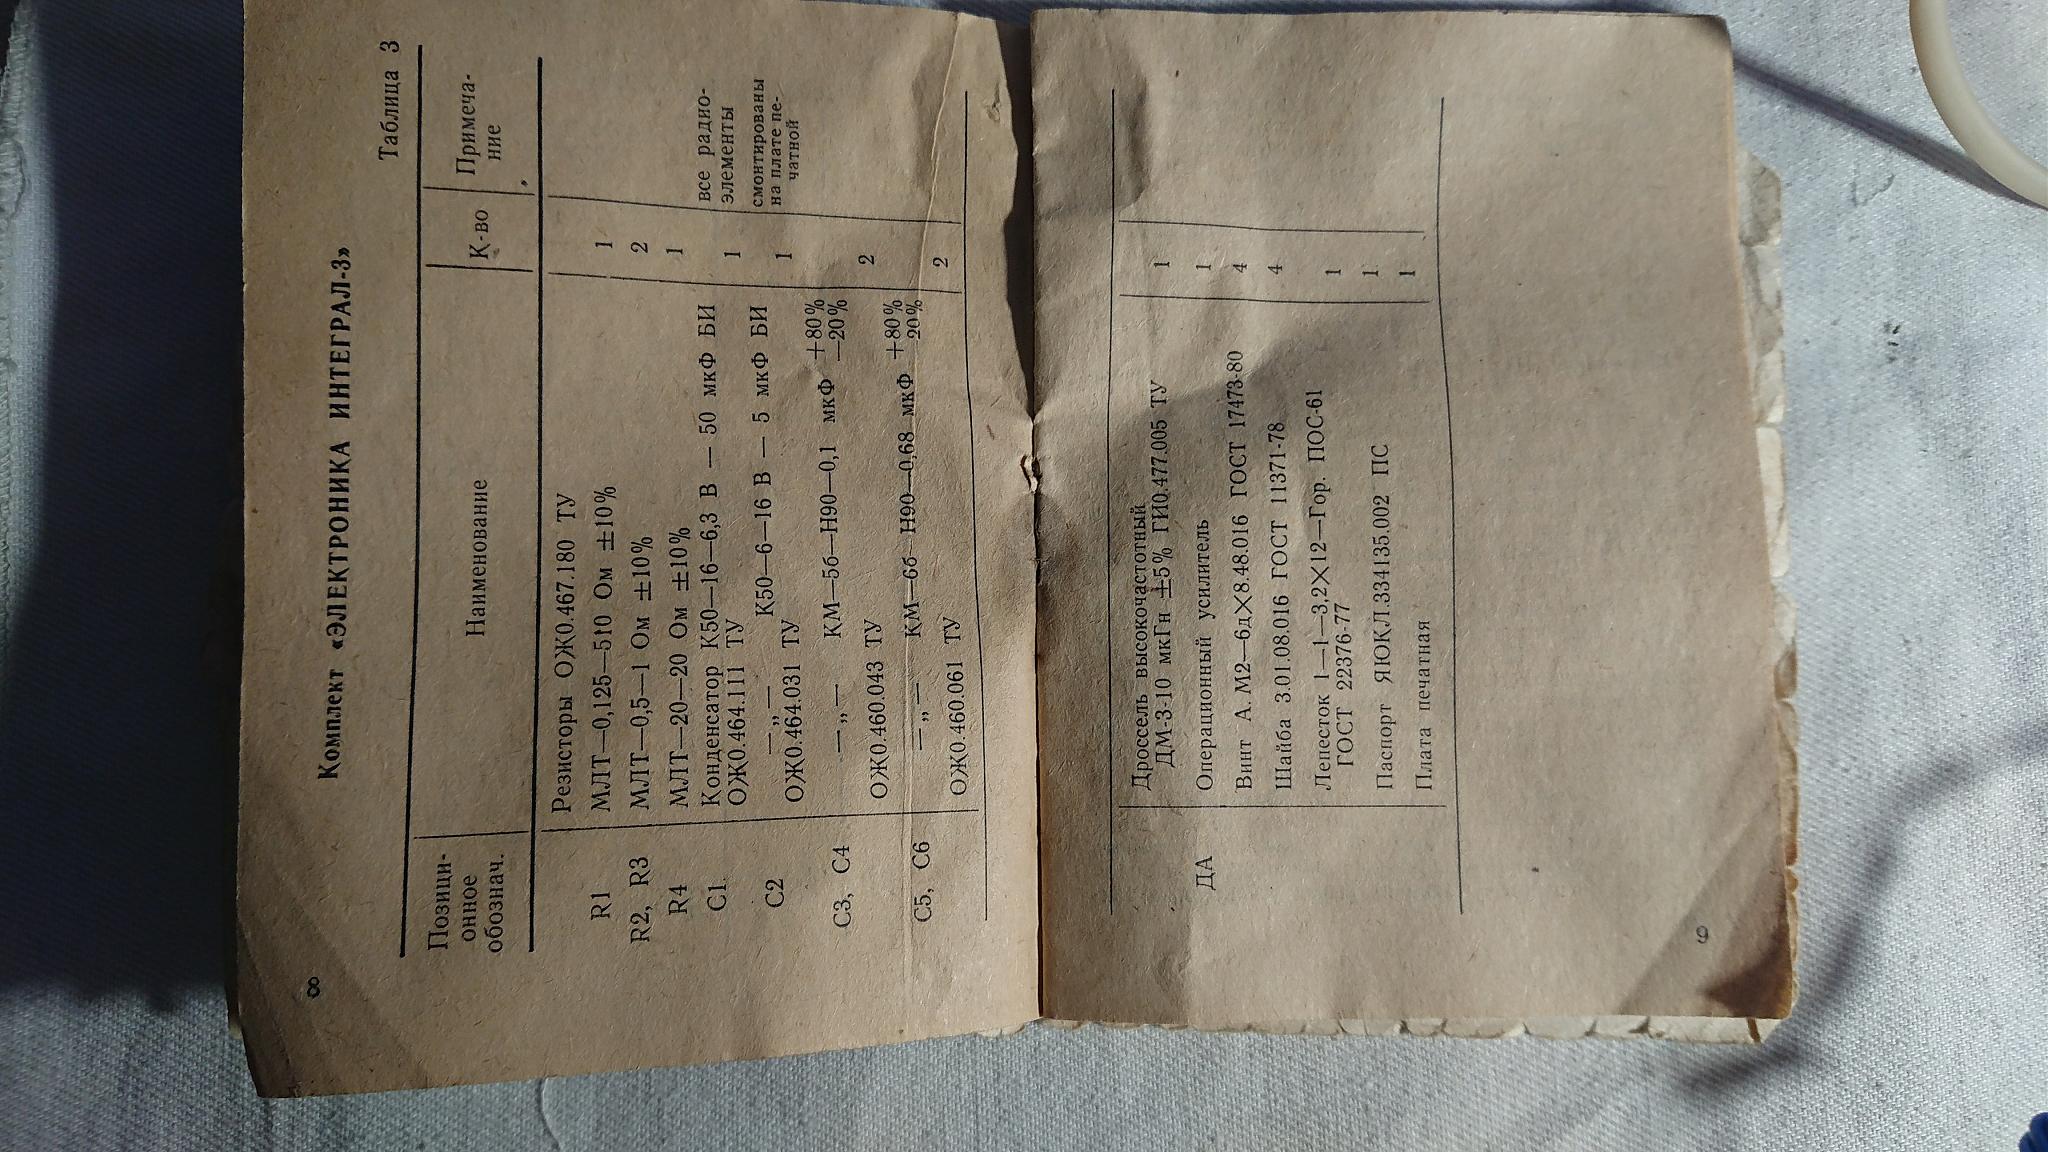 8
Комплект «ЭЛЕКТРОНИКА ИНТЕГРАЛ-3»
Таблица 3
Позици-
онное
обознач.
Наименование
К-во
Примеча-
ние
Резисторы ОЖ0.467.180 ТУ
R1 МЛТ—0,125—510 Ом ±10% 1
R2, R3 МЛТ—0,5—1 Ом ±10% 2
R4 МЛТ—20—20 Ом ±10% 1
C1 Конденсатор К50—16—6,3 В — 50 мкФ БИ 1 все радио-
ОЖ0.464.111 ТУ элементы
C2 —„— К50—6—16 В — 5 мкФ БИ 1 смонтированы
ОЖ0.464.031 ТУ на плате пе-
чатной
C3, C4 —„— КМ—5б—Н90—0,1 мкФ +80% —20% 2
ОЖ0.460.043 ТУ
C5, C6 —„— КМ—6б—Н90—0,68 мкФ +80% 20%
ОЖ0.460.061 ТУ 2
Дроссель высокочастотный
ДМ-3-10 мкГн ±5% ГИ0.477.005 ТУ 1
ДА Операционный усилитель 1
Винт А. М2—6дХ8.48.016 ГОСТ 17473-80 4
Шайба 3.01.08.016 ГОСТ 11371-78 4
Лепесток 1—1—3,2Х12—Гор. ПОС-61
ГОСТ 22376-77 1
Паспорт ЯЮКЛ.334135.002 ПС 1
Плата печатная 1
9